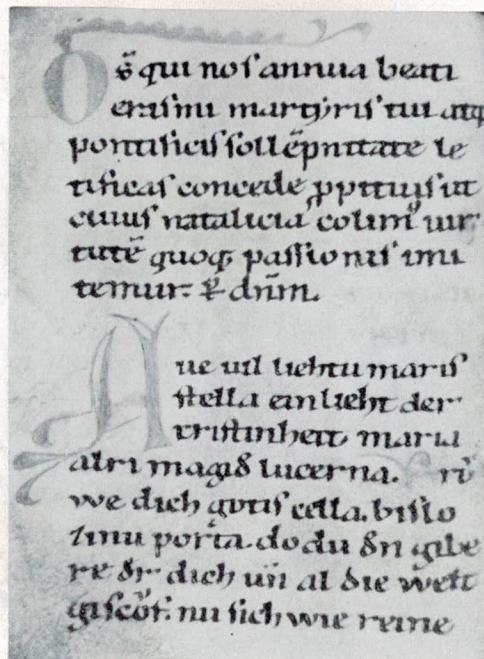 Ds̄ qui nos annua beati
erasmi martẏris tui atq̨
pontificis sollēpnitate le
tificas concede ꝓpitius ut
cuius natalicia colim᷒ uir
tutē quoq̨ passionis imi
temur. ꝑ dn̄m.
Aue uil liehtu maris
stella ein lieht der
cristinheit, maria
alri magid lucerna. rv̊
we dich gotis cella. bislo
zinu porta. do du dn gibe
re dr dich un̄ al die welt
giscoͮf. nu sich wie reine